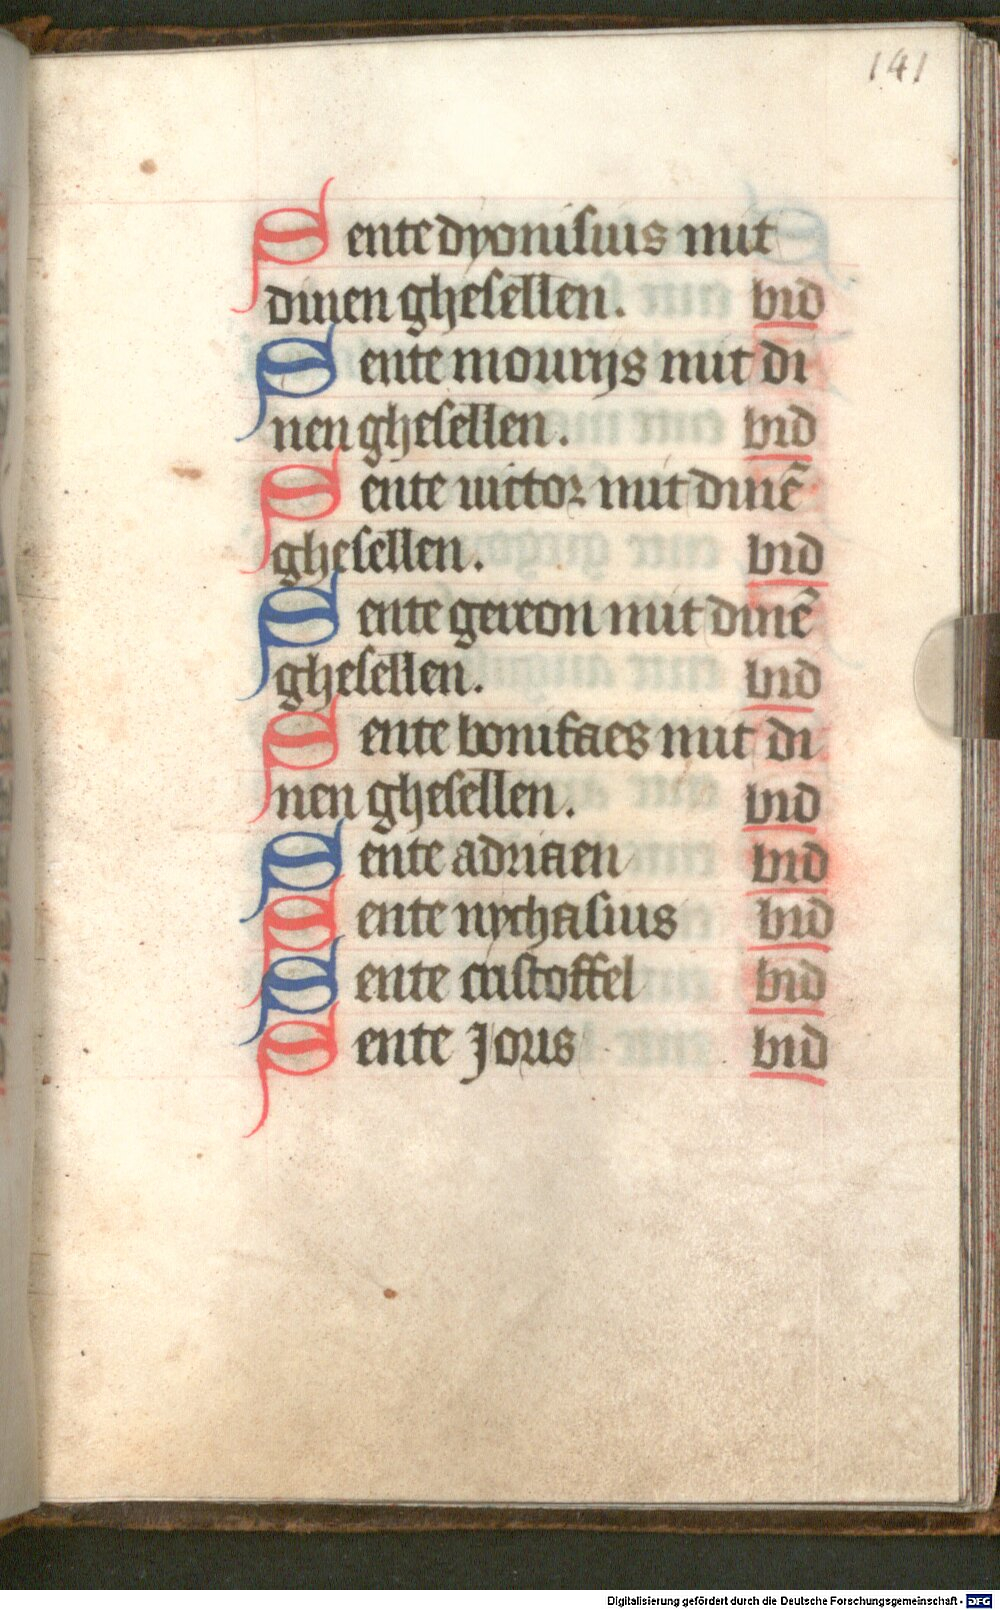 141
Sente dyonisius mit
dinen ghesellen. bid
Sente mourijs mit di
nen ghesellen. bid
Sente victor mit dinē
ghesellen. bid
Sente gereon mit dinē
ghesellen. bid
Sente bonifaes mit di
nen ghesellen. bid
Sente adriaen bid
Sente nychasius bid
Sente cristoffel bid
Sente Joris bid
Digitalisierung gefördert durch die Deutsche Forschungsgemeinschaft - DFG